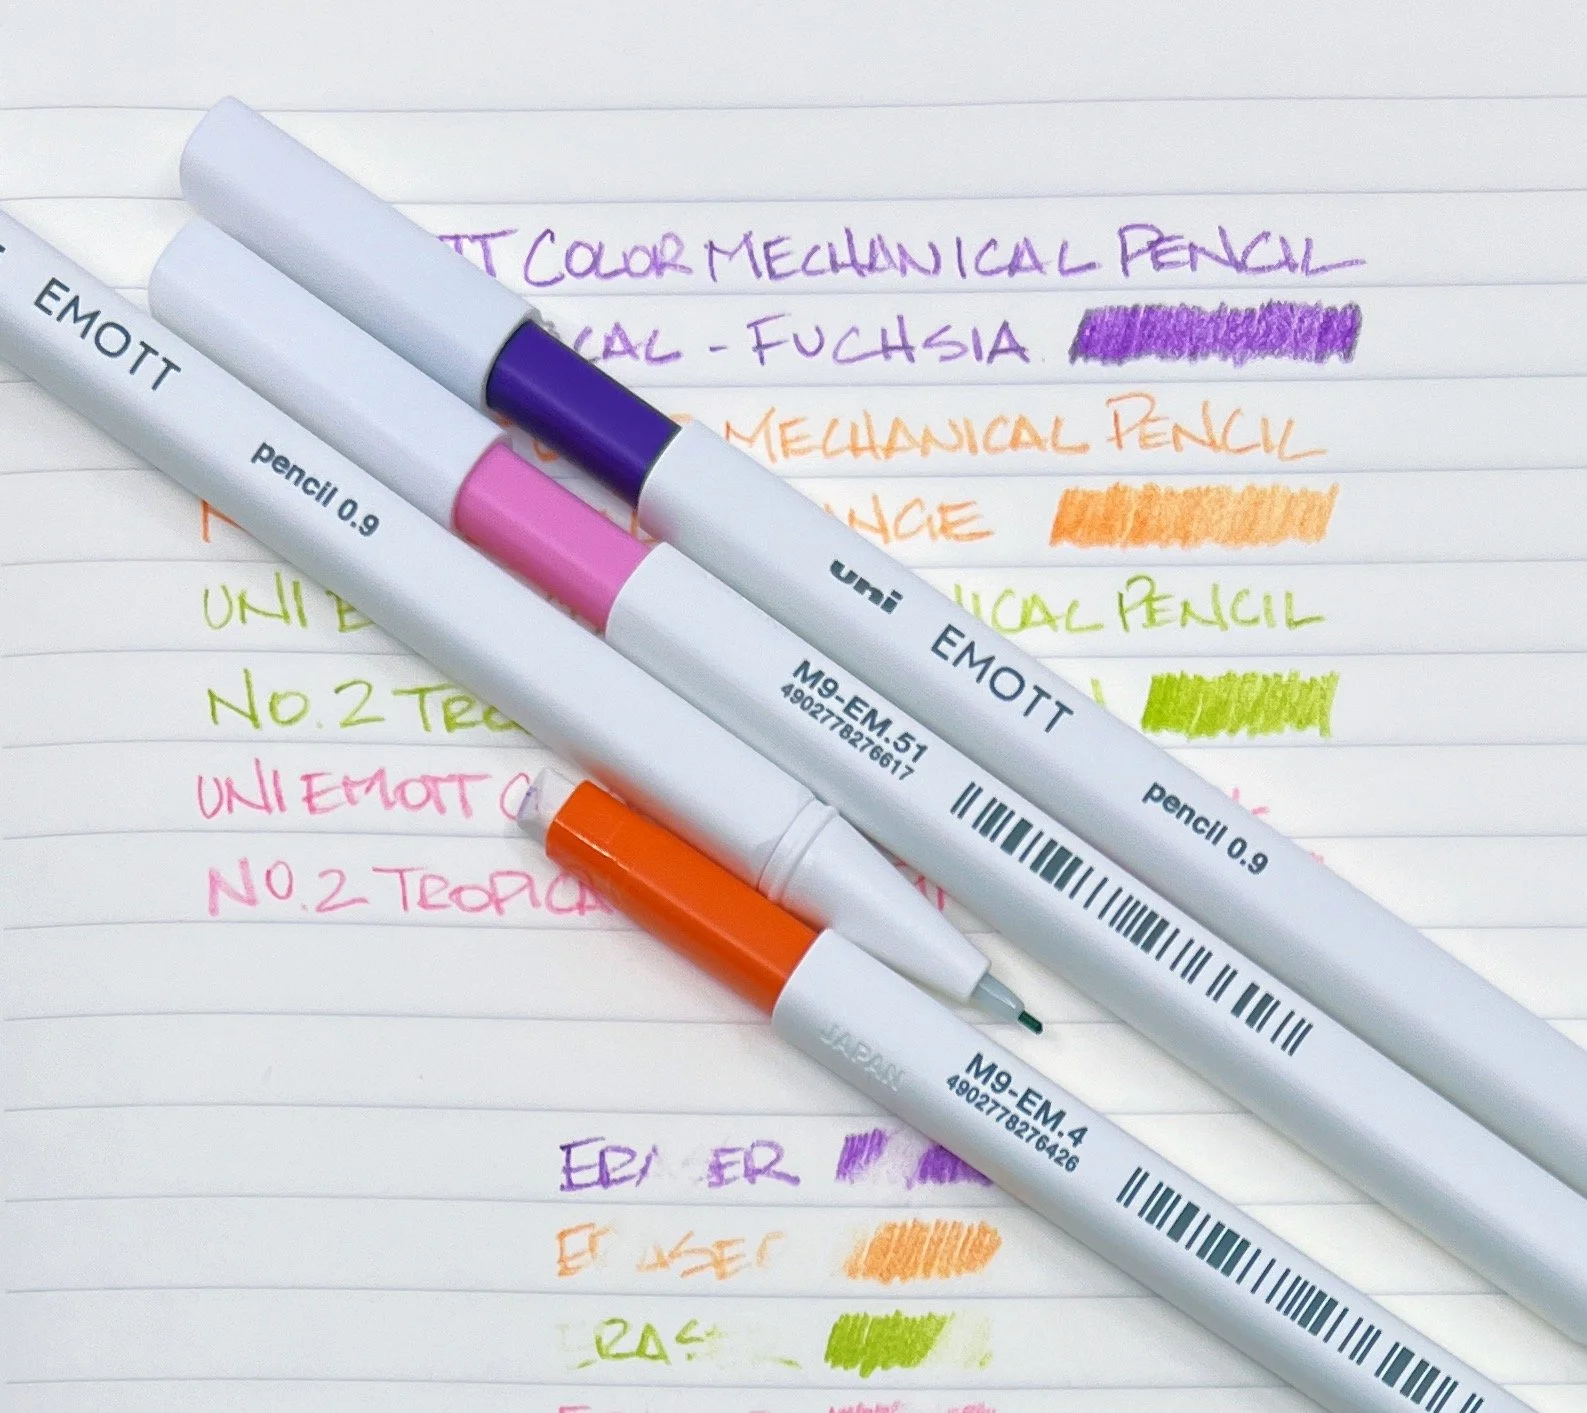 TT COLOR MECHANICAL PENCIL
CAL - FUCHSIA
MECHANICAL PENCIL
NGE
UNI E
ICAL PENCIL
NO. 2 TRO
UNI EMOTT C
NO. 2 TROPICA
EMOTT
pencil 0.9
uni
EMOTT
pencil 0.9
M9-EM.51
4902778276617
JAPAN
M9-EM.4
4902778276426
ERASER
ERASER
ERAS